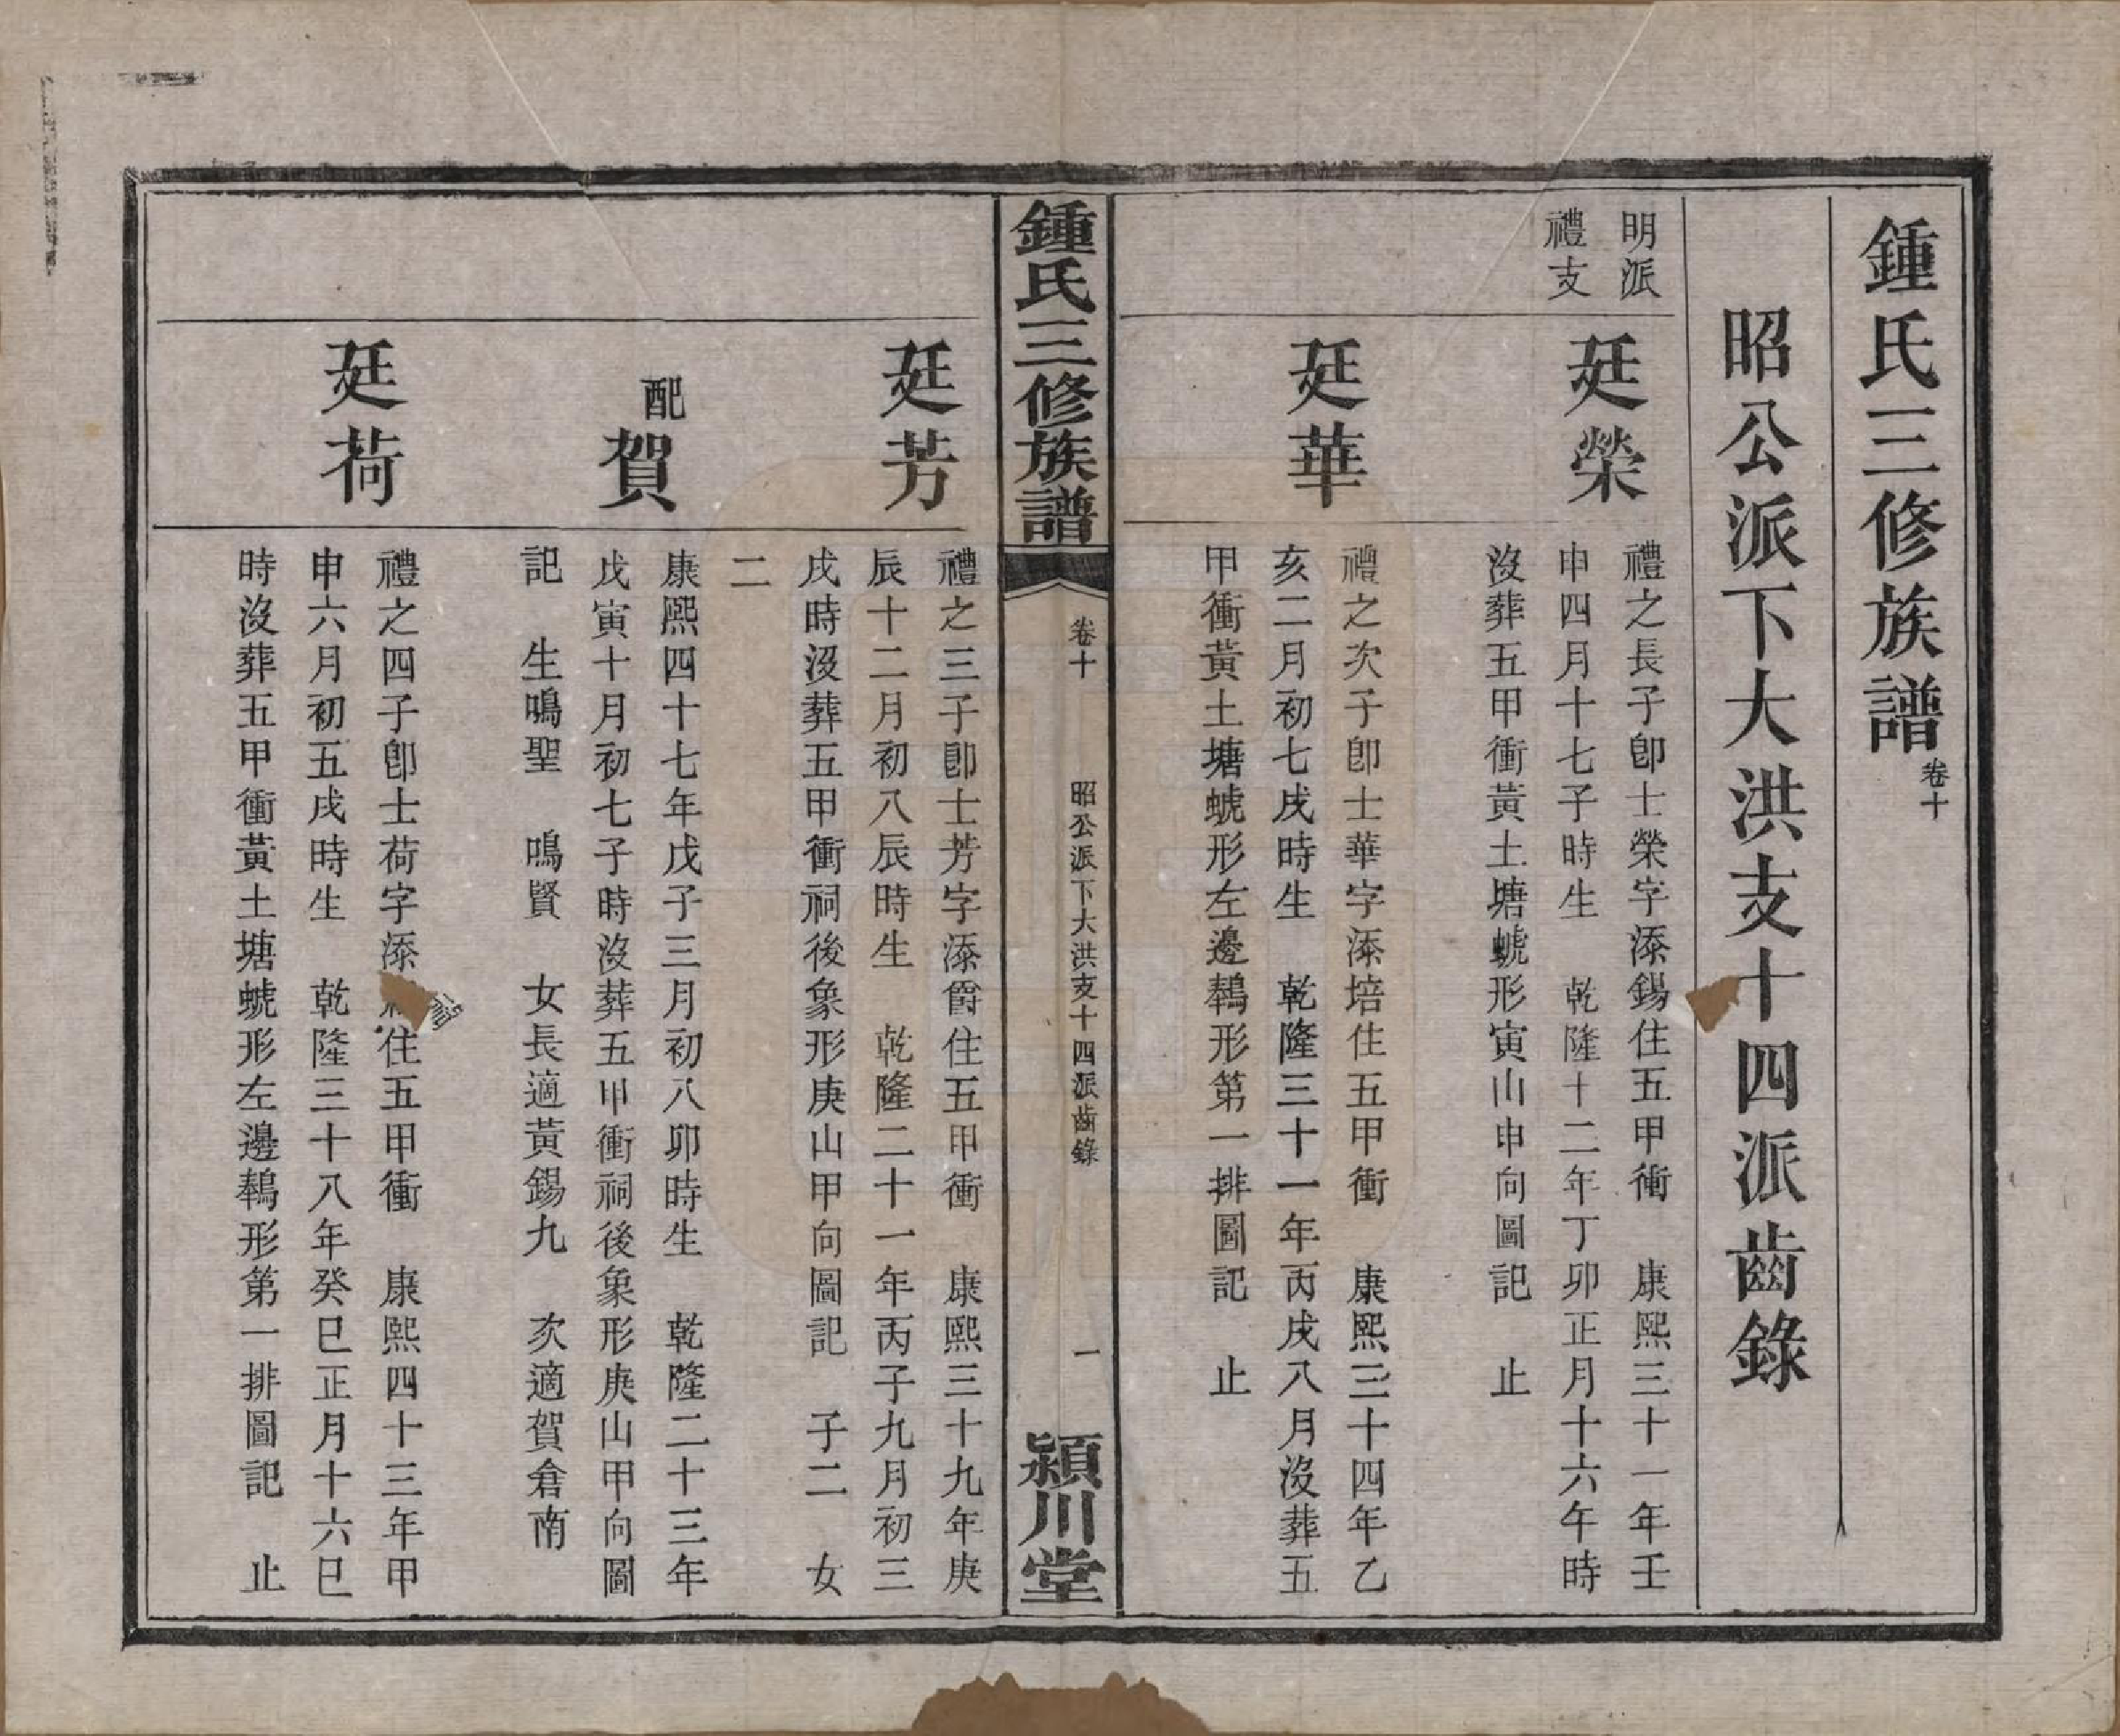 鍾氏三修族譜卷十
昭公派下大洪支十四派齒錄
明派
禮支
廷榮
禮之長子卽士榮字添錫住五甲衝　康熙三十一年壬
申四月十七子時生　乾隆十二年丁卯正月十六午時
沒葬五甲衝黃土塘螔形寅山申向圖記　止
廷華
禮之次子卽士華字添培住五甲衝　康熙三十四年乙
亥二月初七戌時生　乾隆三十一年丙戌八月沒葬五
甲衝黃土塘螔形左邊鵝形第一排圖記　止
鍾氏三修族譜
卷十
昭公派下大洪支十四派齒錄
一
潁川堂
廷芳
禮之三子卽士芳字添爵住五甲衝　康熙三十九年庚
辰十二月初八辰時生　乾隆二十一年丙子九月初三
戌時沒葬五甲衝祠後象形庚山甲向圖記　子二　女
二
配賀
康熙四十七年戊子三月初八卯時生　乾隆二十三年
戊寅十月初七子時沒葬五甲衝祠後象形庚山甲向圖
記　生鳴聖　鳴賢　女長適黃錫九　次適賀倉南
廷荷
禮之四子卽士荷字添住五甲衝　康熙四十三年甲
申六月初五戌時生　乾隆三十八年癸巳正月十六巳
時沒葬五甲衝黃土塘螔形左邊鵝形第一排圖記　止